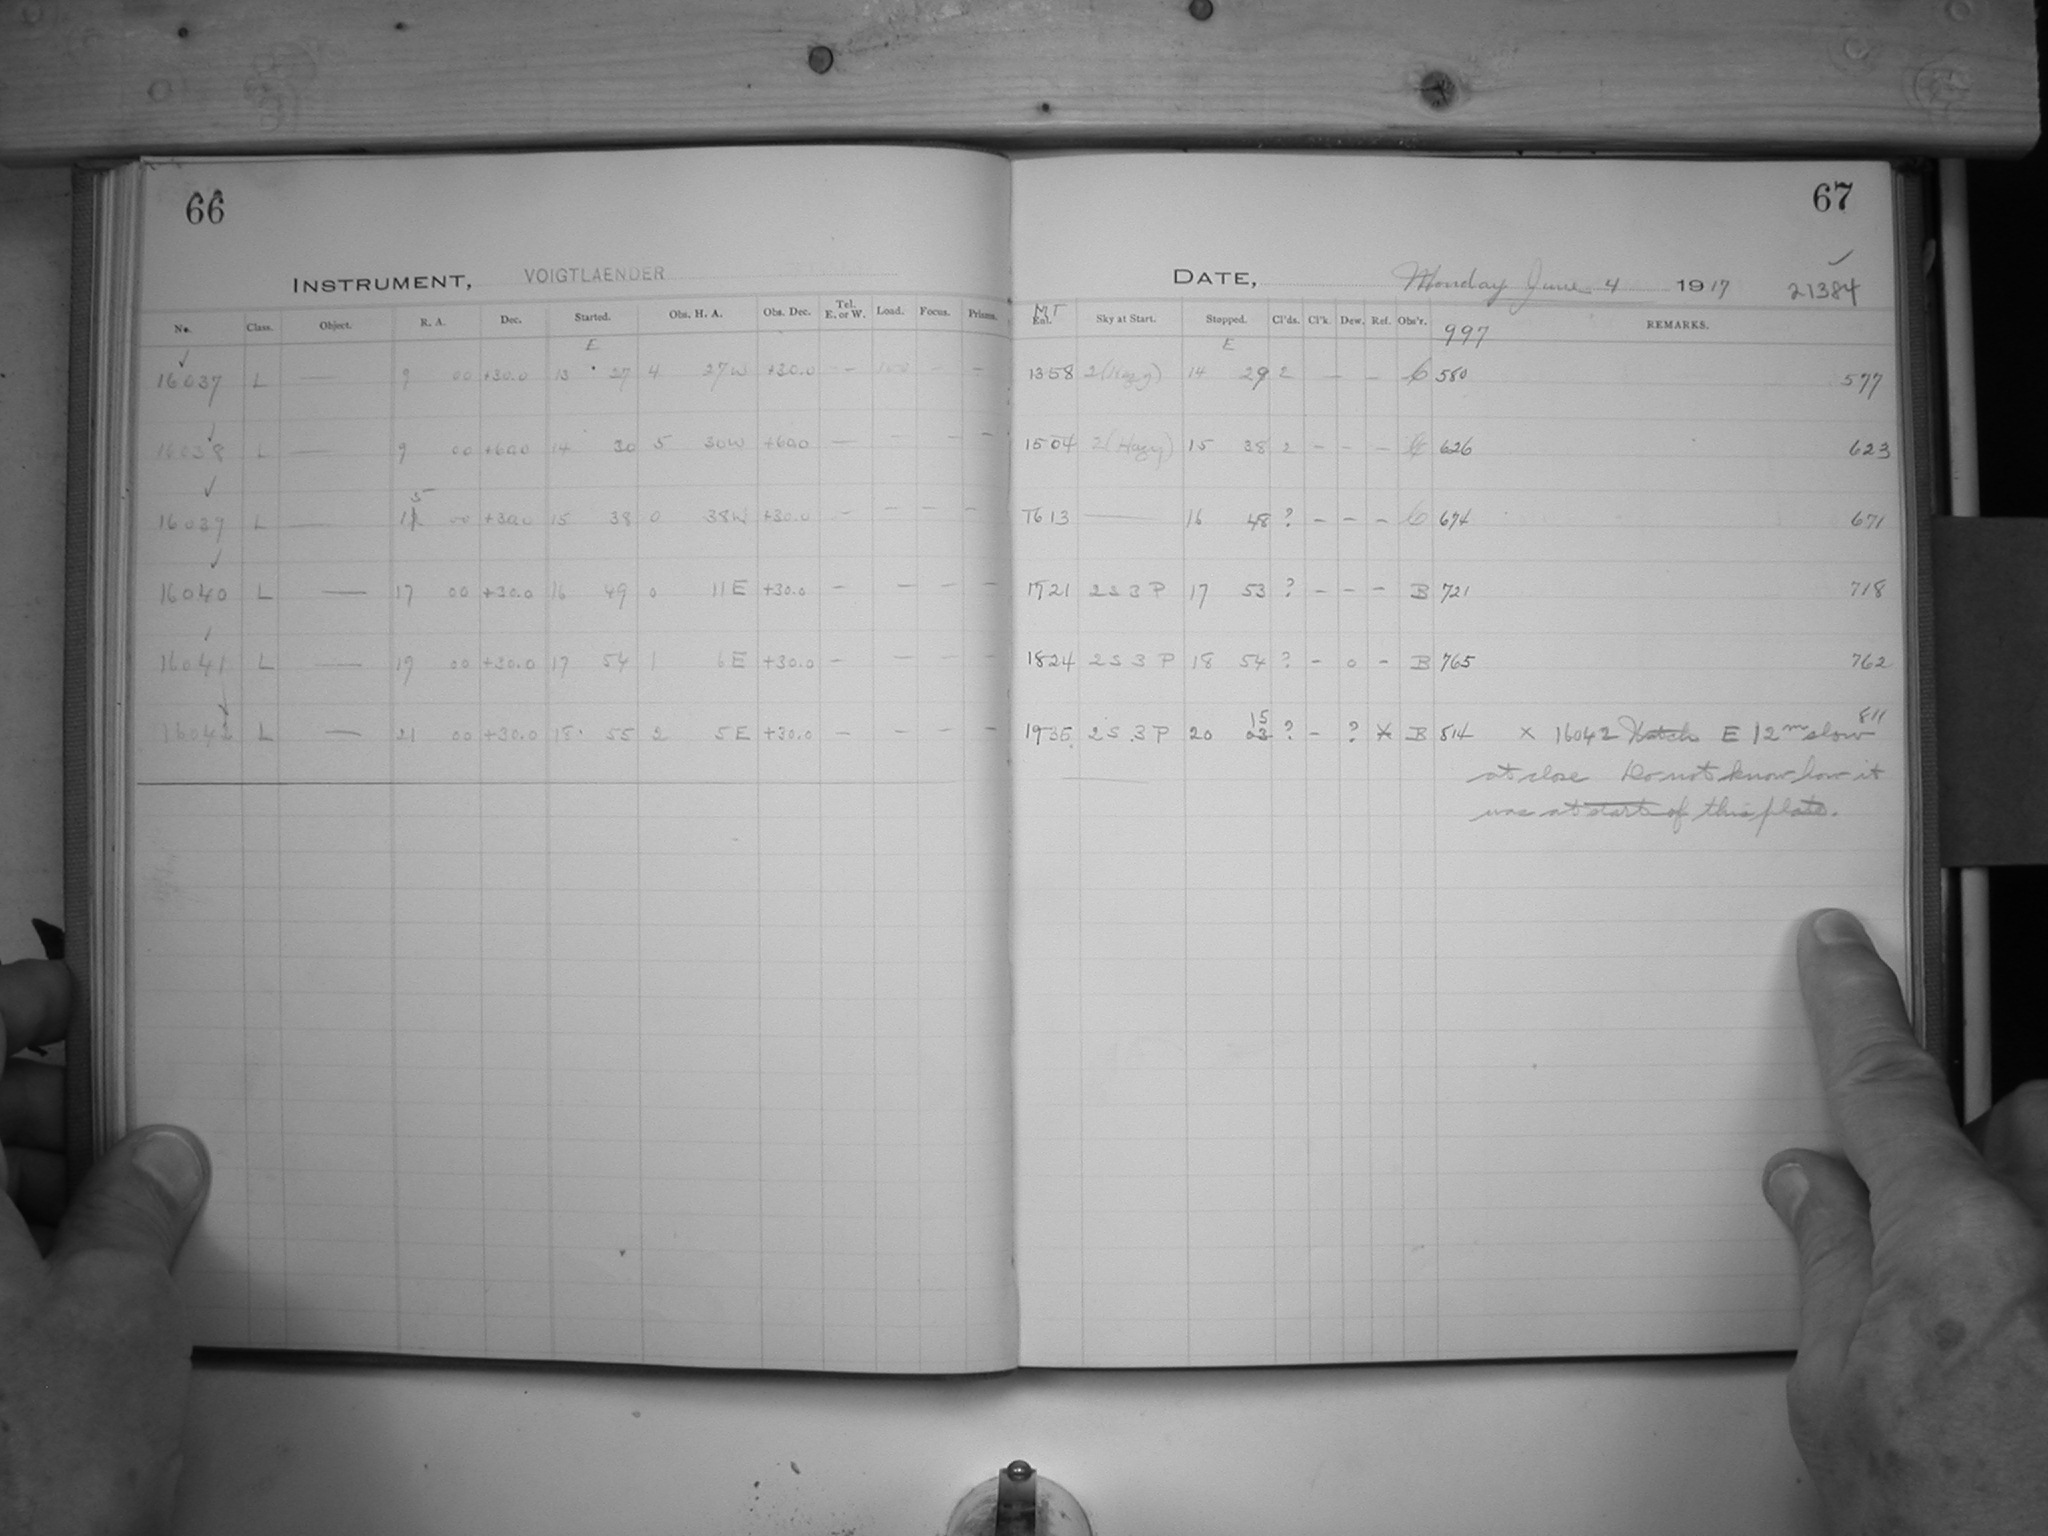 66
INSTRUMENT, VOIGTLAENDER
No. Class. Object. R. A. Dec. Started. Obs. H. A. Obs. Dec. Tel. E. or W. Load. Focus. Prisms.
E
16037 L — 9 00 +30.0 13 27 4 27W +30.0 — 100 — —
16038 L — 9 00 +60.0 14 30 5 30W +60.0 — — —
5
16039 L — 00 +30.0 15 38 0 38W +30.0 — — — —
16040 L — 17 00 +30.0 16 49 0 11E +30.0 — — — —
16041 L — 19 00 +30.0 17 54 1 6E +30.0 — — — —
16042 L — 21 00 +30.0 18 55 2 5E +30.0 — — — —
67
DATE, Monday June 4 1917 21384
MT
Sky at Start. Stopped. Cl'ds. Cl'k. Dew. Ref. Obs'r. 997 REMARKS.
E
1358 2 (Hazy) 14 29 2 — — 580 577
1504 2 (Hazy) 15 38 2 – – – 626 623
1613 — 16 48 ? – – – 674 671
1721 2S 3P 17 53 ? – – – B 721 718
1824 2S 3P 18 54 ? – 0 – B 765 762
15
1935 2S 3P 20 03 ? – ? X B 814 811
X 16042 Watch E 12m slow
at close Do not know how it
was at start of this plate.